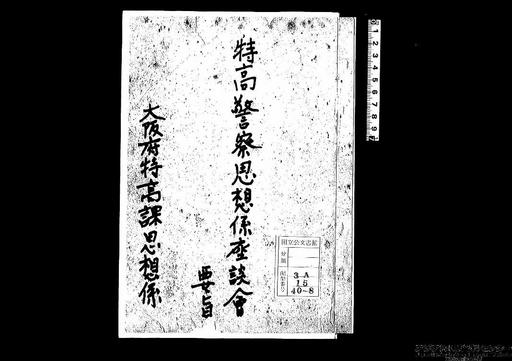 特高警察思想係座談會
要旨
大阪府特高課思想係
国立公文書館
分類
配架番号
3A
15
40-8
1 2 3 4 5 6 7 8 9